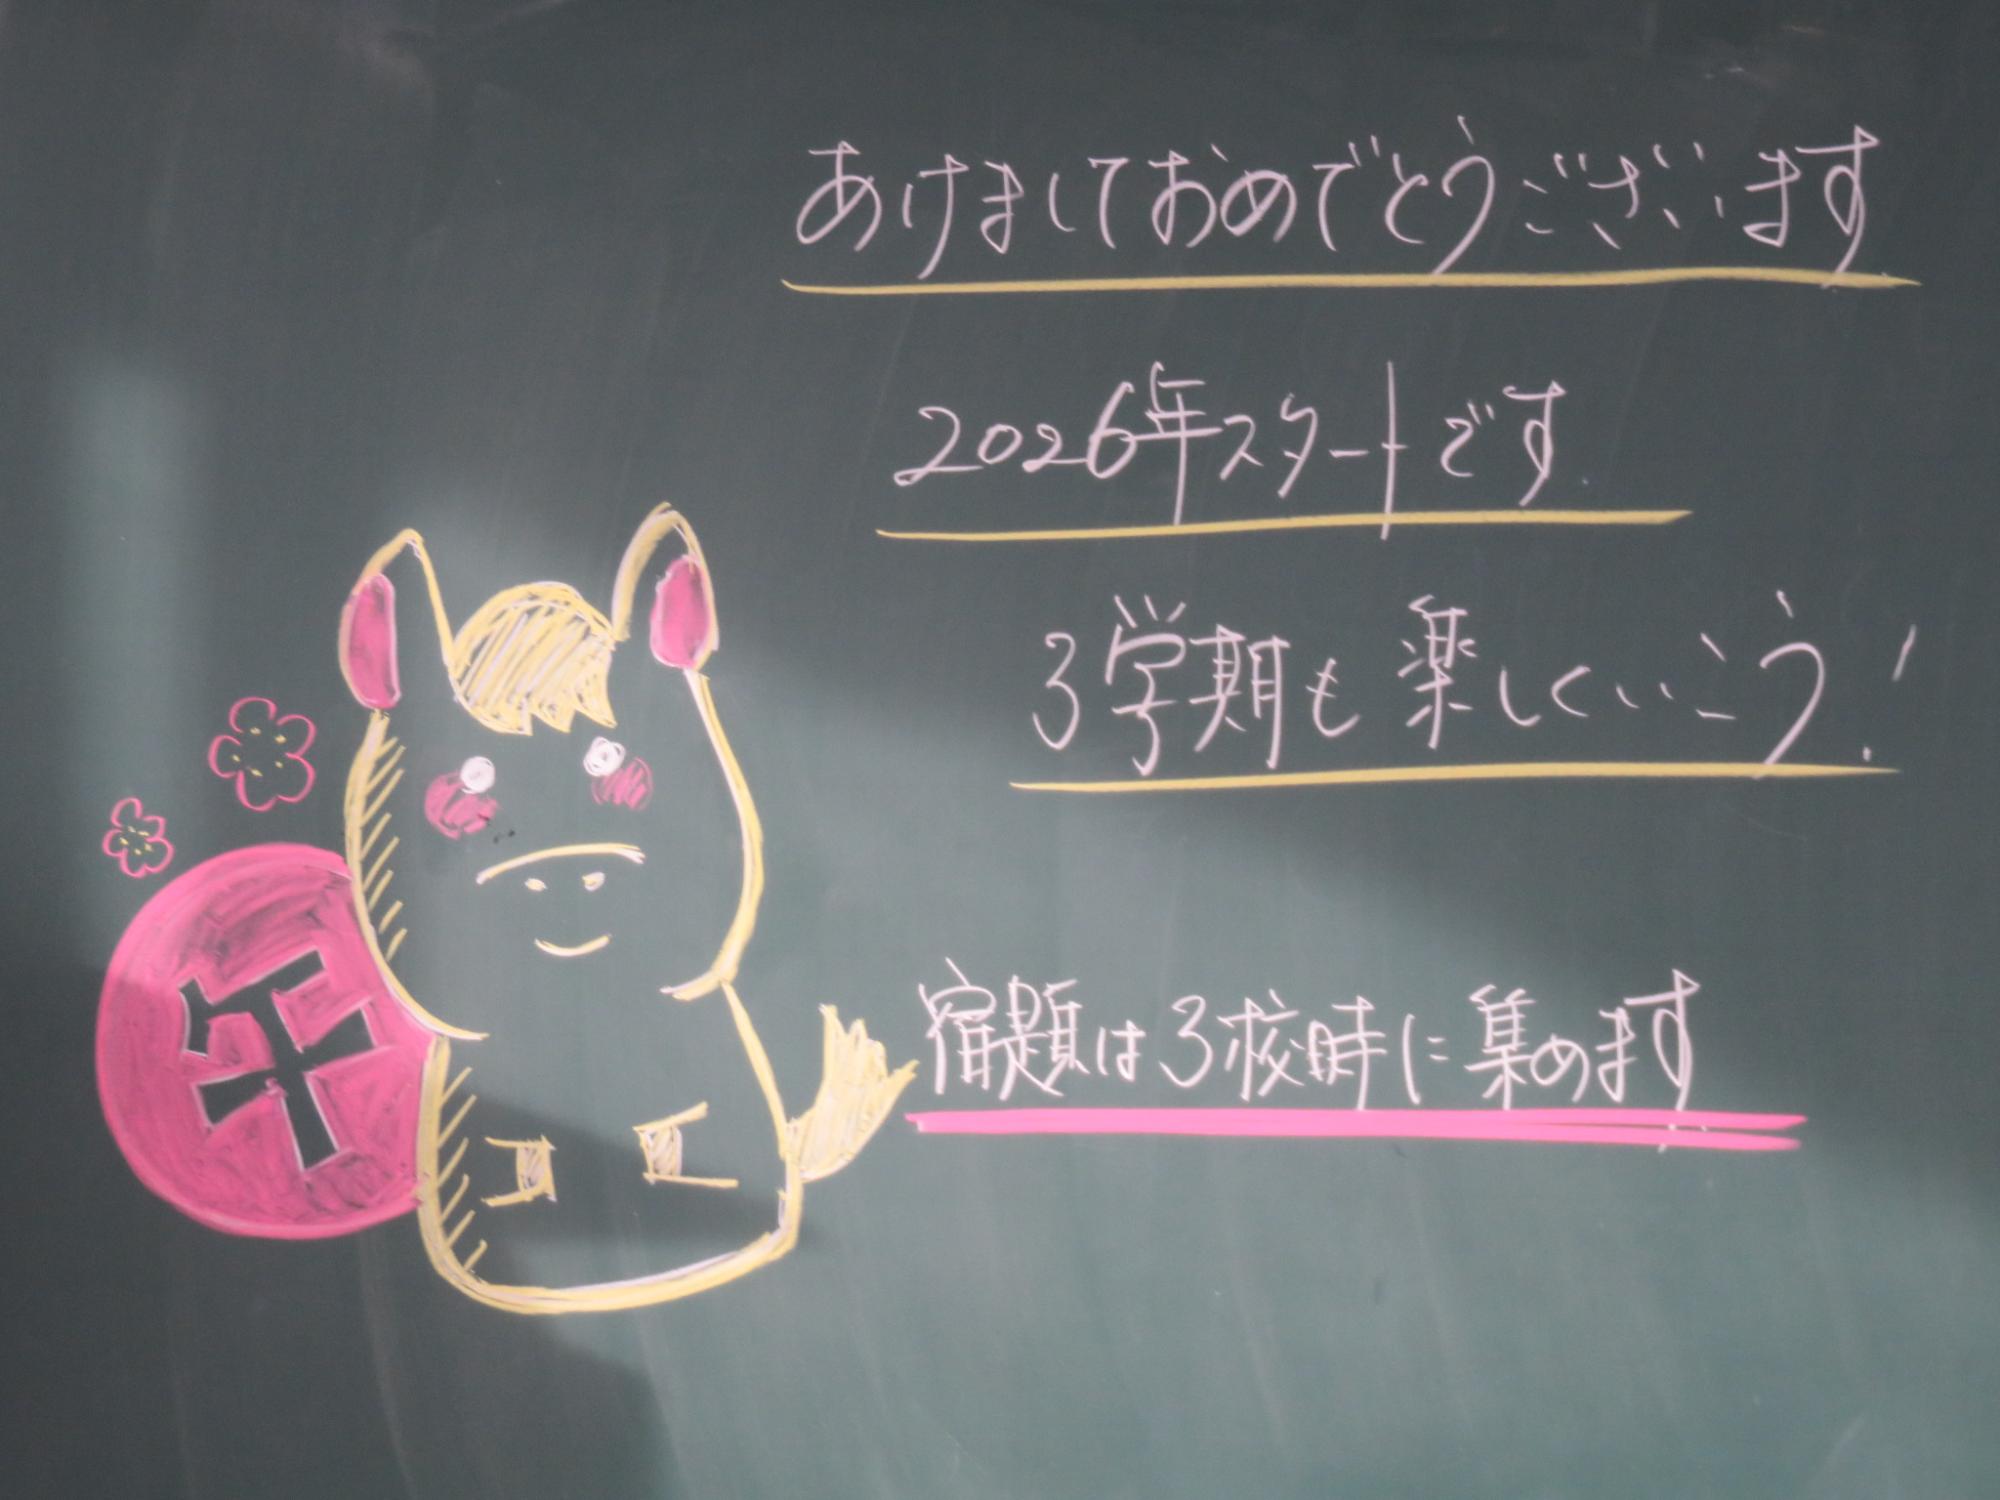 あけましておめでとうございます
2026年スタートです.
3学期も楽しくいこう!
宿題は3校時に集めます
午